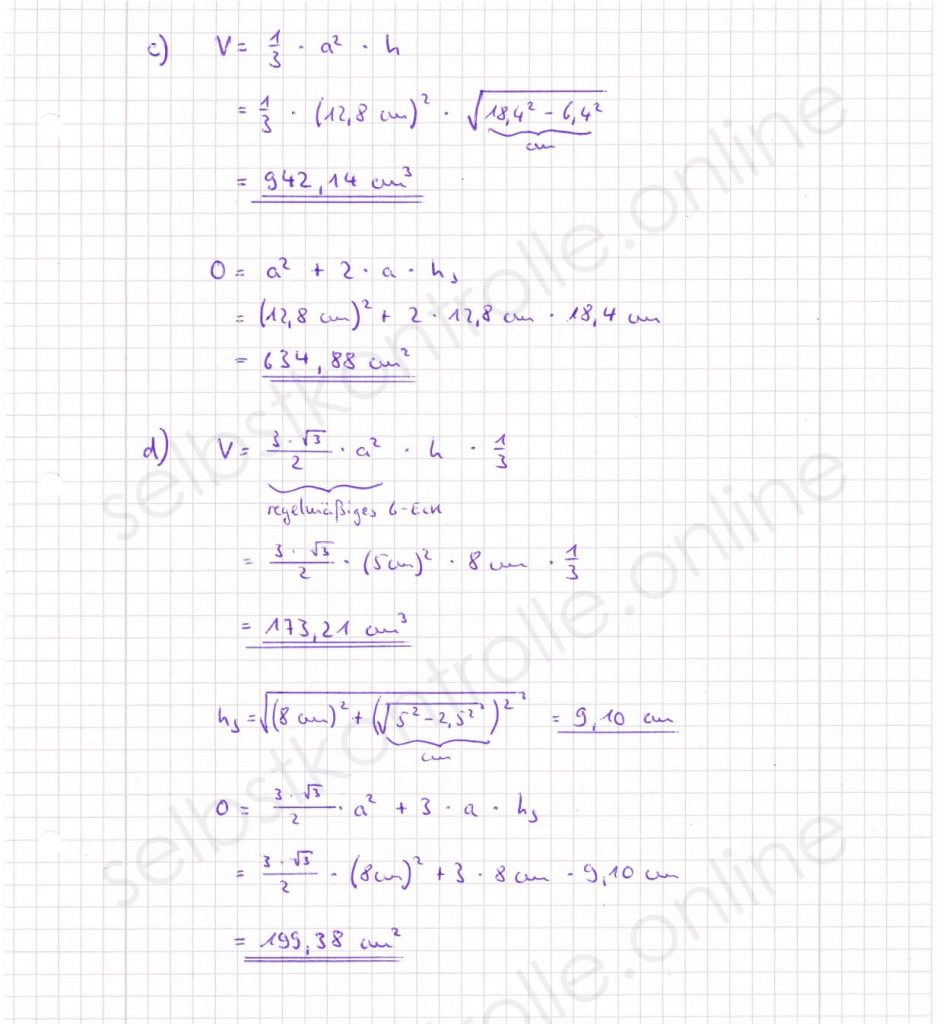 c) V = 1/3 · a² · h
= 1/3 · (12,8 cm)² · √(18,4² - 6,4²)
cm
= 942,14 cm³
O = a² + 2 · a · hₛ
= (12,8 cm)² + 2 · 12,8 cm · 18,4 cm
= 634,88 cm²
d) V = (3 · √3)/2 · a² · h · 1/3
regelmäßiges 6-Eck
= (3 · √3)/2 · (5cm)² · 8 cm · 1/3
= 173,21 cm³
hₛ = √((8 cm)² + (√(5² - 2,5²))²) = 9,10 cm
cm
O = (3 · √3)/2 · a² + 3 · a · hₛ
= (3 · √3)/2 · (8cm)² + 3 · 8 cm · 9,10 cm
= 199,38 cm²
selbstkontrolle.online
selbstkontrolle.online
selbstkontrolle.online